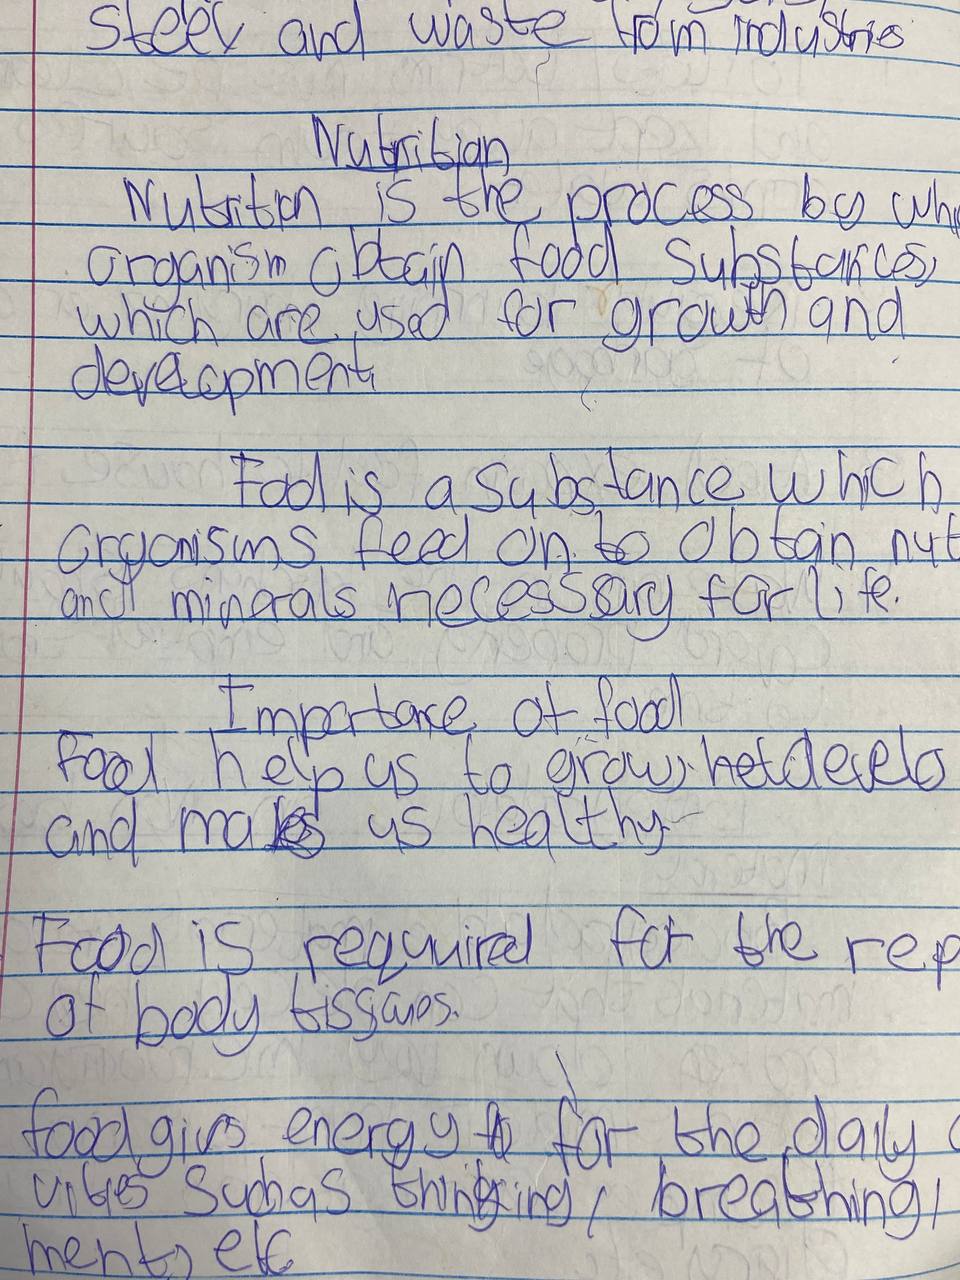 steel and waste from industries
Nutrition
Nutrition is the process by whi
organism obtain food substances,
which are used for growth and
development
Food is a substance which
organisms feed on to obtain nut
and minerals necessary for life.
Importance of food
Food help us to grow, develo
and makes us healthy
Food is required for the rep
of body tissues.
food gives energy for the daily
vities such as thinking, breathing,
ment, etc